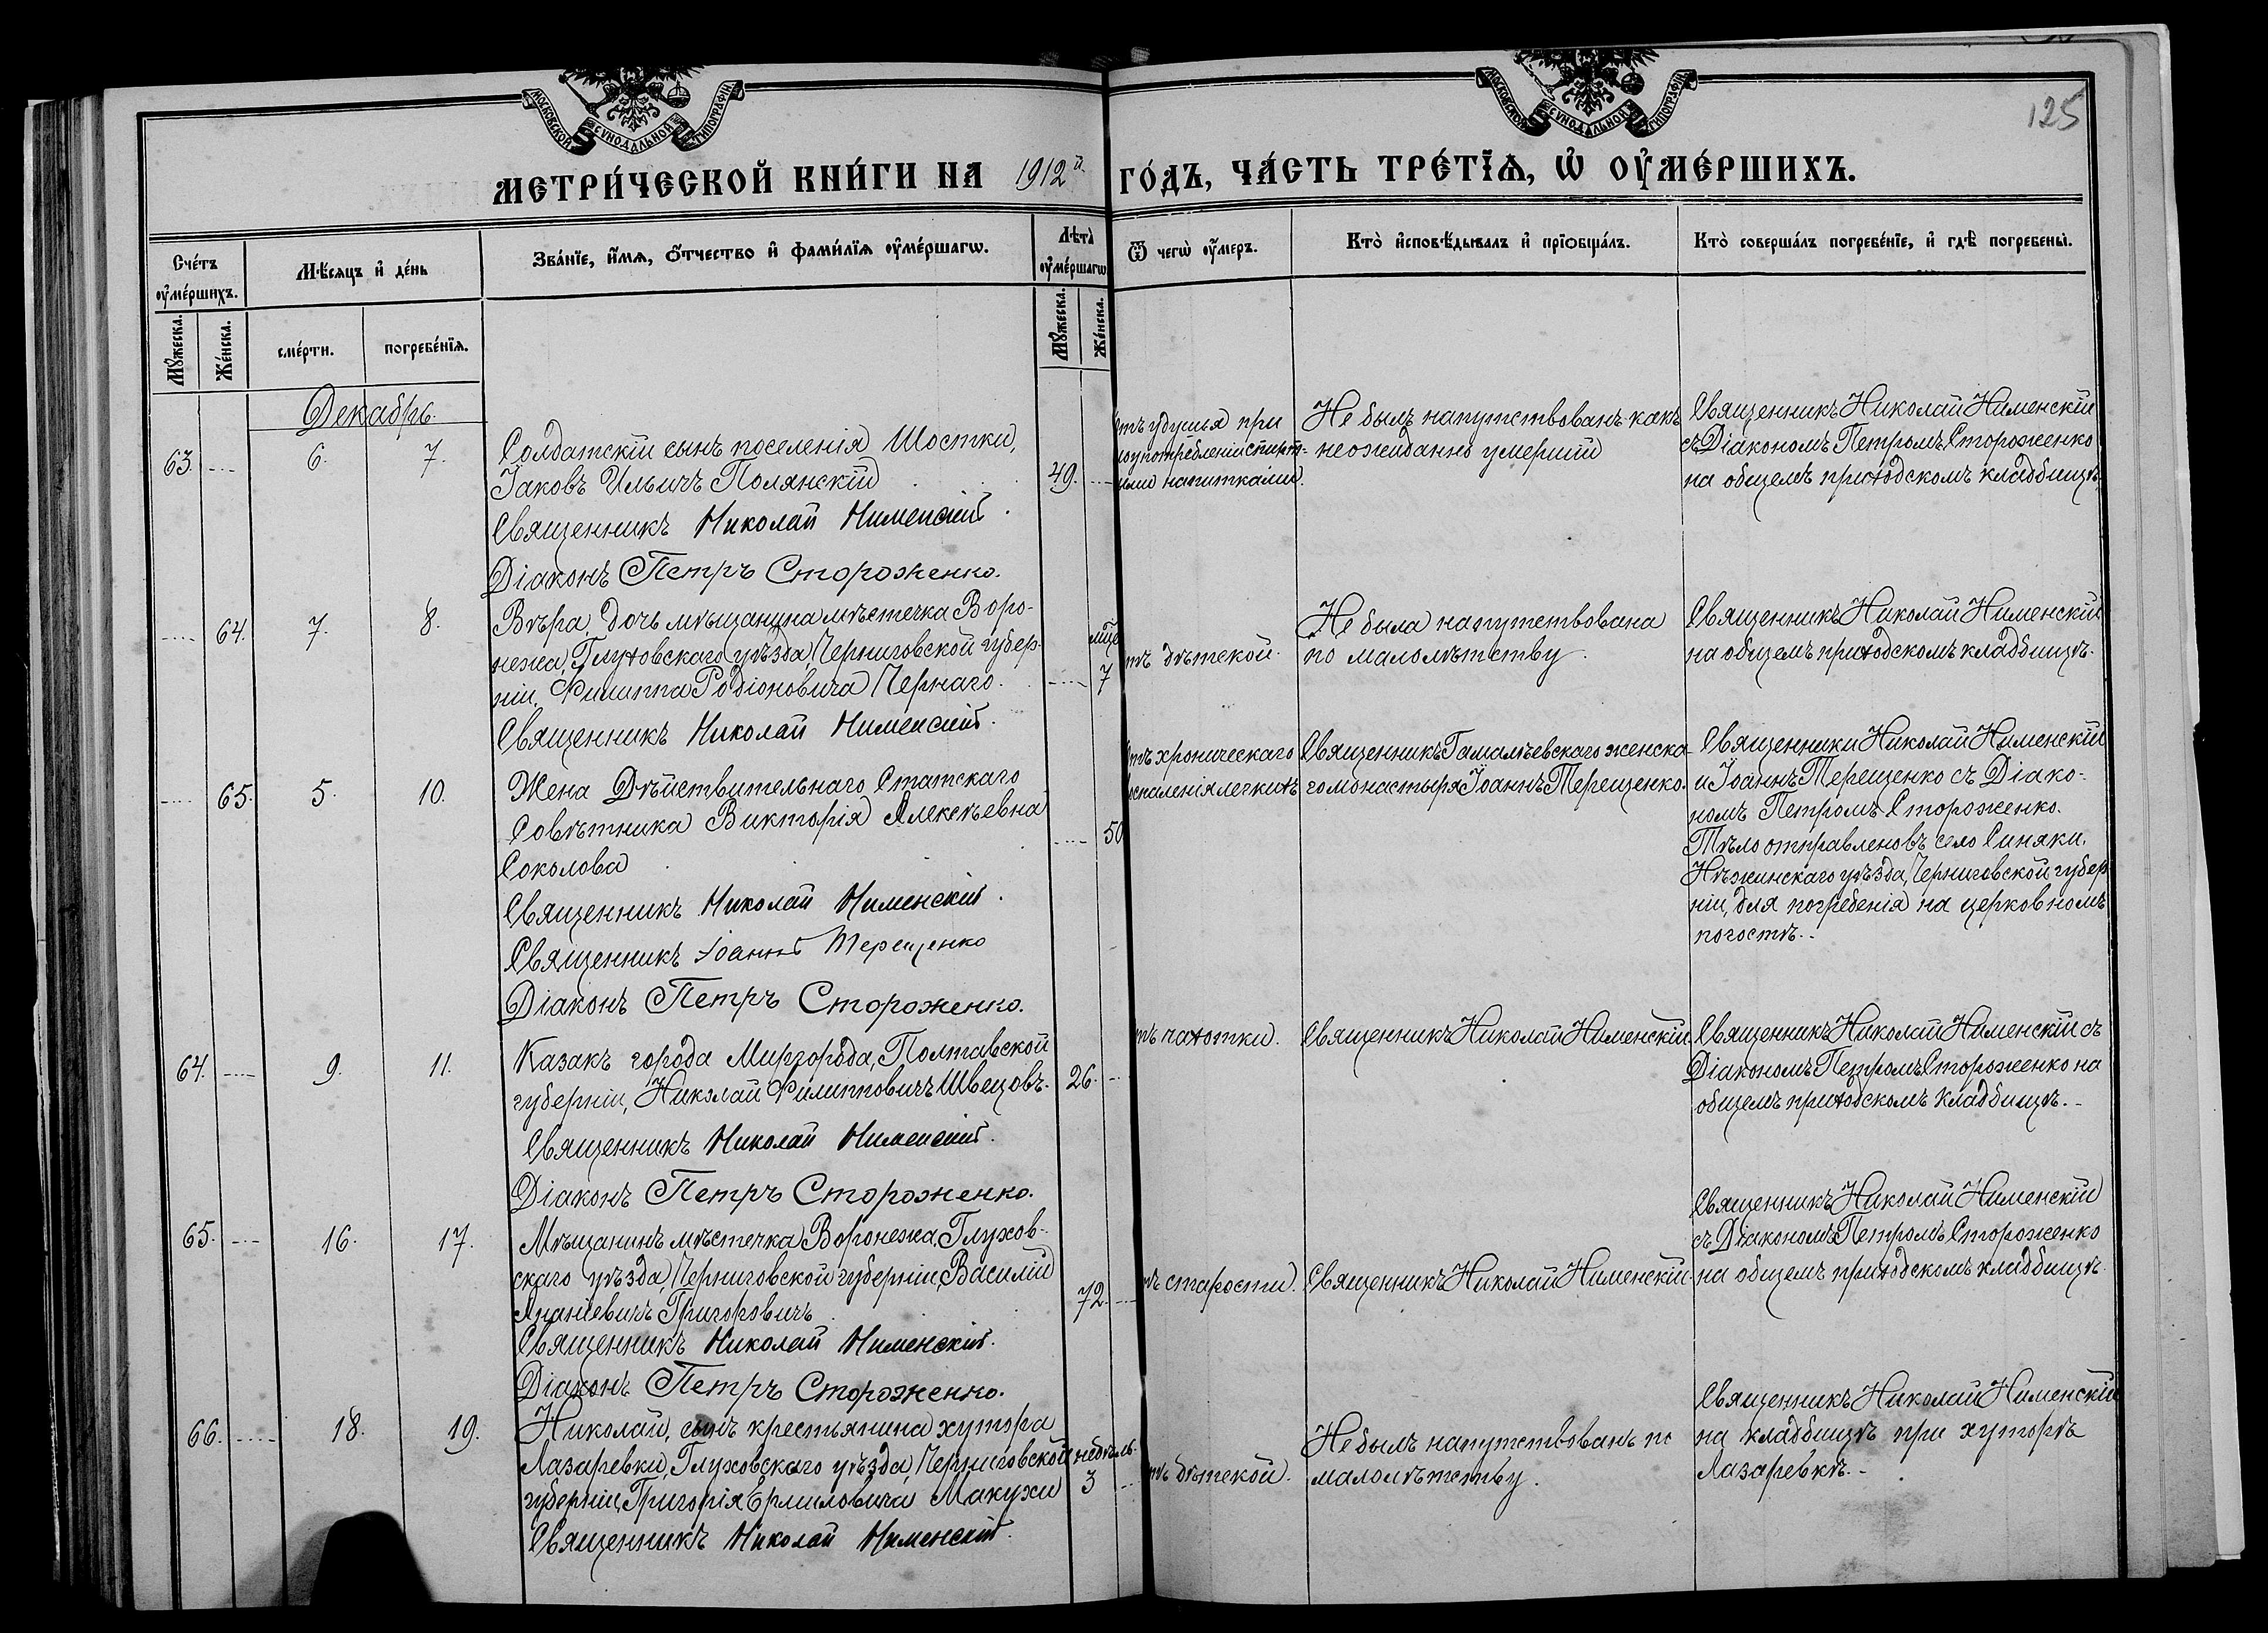 125
МОСКОВСКОЙ СѴНОДАЛЬНОЙ ТИПОГРАФІИ
МОСКОВСКОЙ СѴНОДАЛЬНОЙ ТИПОГРАФІИ
МЕТРИ́ЧЕСКОЙ КНИ́ГИ НА 1912й ГО́ДЪ, ЧА́СТЬ ТРЕ́ТЇѦ, Ѡ҆ ОУ҆МЕ́РШИХЪ.
Сче́тъ оу҆ме́ршихъ.
Мѣ́сѧцъ и҆ де́нь
Зва́нїе, и҆́мѧ, ѻ҆́тчество и҆ фами́лїѧ оу҆ме́ршагѡ.
Лѣта̀ оу҆ме́ршагѡ
Ѿ чегѡ̀ оу҆́меръ.
Кто̀ и҆сповѣ́дывалъ и҆ прїѡбща́лъ.
Кто̀ соверша́лъ погребе́нїе, и҆ гдѣ̀ погребены̀.
Мꙋ́жеска.
Же́нска.
сме́рти.
погребе́нїѧ.
Мꙋ́жеска.
Же́нска.
Декабрь.
63. 6. 7.
Солдатскій сынъ поселенія Шостки,
Іаковъ Ильичъ Полянскій
49.
Священникъ Николай Нименскій.
Діаконъ Петръ Стороженко.
отъ удушья при
напитками.
Не былъ напутствованъ какъ
неожиданно умершій
Священникъ Николай Нименскій
съ Діакономъ Петромъ Стороженко
на общемъ приходскомъ кладбищѣ.
64. 7. 8.
Вѣра, дочь мѣщанина мѣстечка Воро-
нежа, Глуховскаго уѣзда, Черниговской губер-
ніи, Филиппа Родіоновича Чернаго.
7
Священникъ Николай Нименскій.
отъ дѣтской.
Не была напутствована
по малолѣтству.
Священникъ Николай Нименскій
на общемъ приходскомъ кладбищѣ.
65. 5. 10.
Жена Дѣйствительнаго Статскаго
Совѣтника Викторія Алексѣевна
Соколова
50
Священникъ Николай Нименскій.
Священникъ Іоаннъ Терещенко
Діаконъ Петръ Стороженко.
отъ хроническаго
воспаленія легкихъ
Священникъ Гамалѣевскаго женска-
го монастыря Іоаннъ Терещенко.
Священники Николай Нименскій
и Іоаннъ Терещенко съ Діако-
номъ Петромъ Стороженко.
Тѣло отправлено въ село Синяки,
Нѣжинскаго уѣзда, Черниговской губер
ніи, для погребенія на церковномъ
погостѣ.
64. 9. 11.
Казакъ города Миргорода, Полтавской
губерніи, Николай Филипповичъ Швецовъ.
26.
Священникъ Николай Нименскій.
Діаконъ Петръ Стороженко.
отъ чахотки.
Священникъ Николай Нименскій.
Священникъ Николай Нименскій съ
Діакономъ Петромъ Стороженко на
общемъ приходскомъ кладбищѣ.
65. 16. 17.
Мѣщанинъ мѣстечка Воронежа, Глухов-
скаго уѣзда, Черниговской губерніи, Василій
Ананіевичъ Григоровичъ
72.
Священникъ Николай Нименскій.
Діаконъ Петръ Стороженко.
отъ старости.
Священникъ Николай Нименскій.
Священникъ Николай Нименскій
съ Діакономъ Петромъ Стороженко
на общемъ приходскомъ кладбищѣ.
66. 18. 19.
Николай, сынъ крестьянина хутора
Лазаревки, Глуховскаго уѣзда, Черниговской
губерніи, Григорія Ермиловича Макухи
недѣль.
3
Священникъ Николай Нименскій.
отъ дѣтской.
Не былъ напутствованъ по
малолѣтству.
Священникъ Николай Нименскій
на кладбищѣ при хуторѣ
Лазаревкѣ.